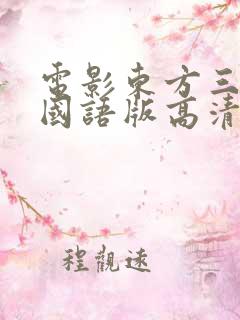 電影東方三
國語版高清
程觀遠